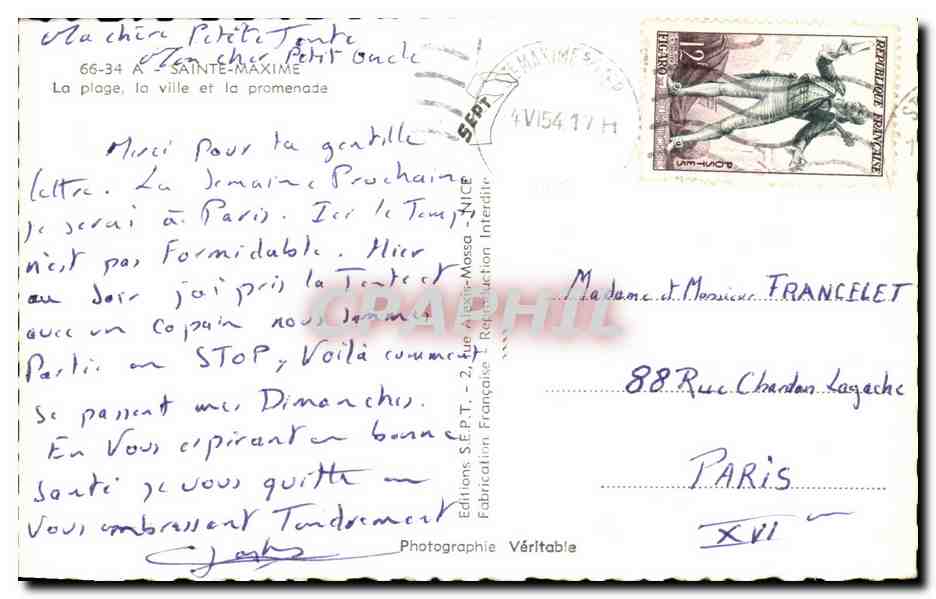 Ma chère Petite Tante
Mon cher Petit Oncle
66-34 A - SAINTE-MAXIME
La plage, la ville et la promenade
Merci pour ta gentille
lettre. La Semaine Prochaine
je serai à Paris. Ici le Temps
n'est pas Formidable. Hier
au Soir j'ai pris la Tente et
avec un copain nous sommes
Partis en STOP, Voilà comment
se passent mes Dimanches.
En Vous espérant en bonne
santé je vous quitte en
Vous embrassant Tendrement
Photographie Véritable
Editions S.E.P.T. - 2, rue Alexis-Mossa - NICE
Fabrication Française - Reproduction Interdite
SEPT
STE MAXIME S/
4 VI 54.17 H
12F
FIGARO
REPUBLIQUE FRANÇAISE
POSTES
CPAPHIL
Madame et Monsieur FRANCELET
88 Rue Chardon Lagache
PARIS
XVI